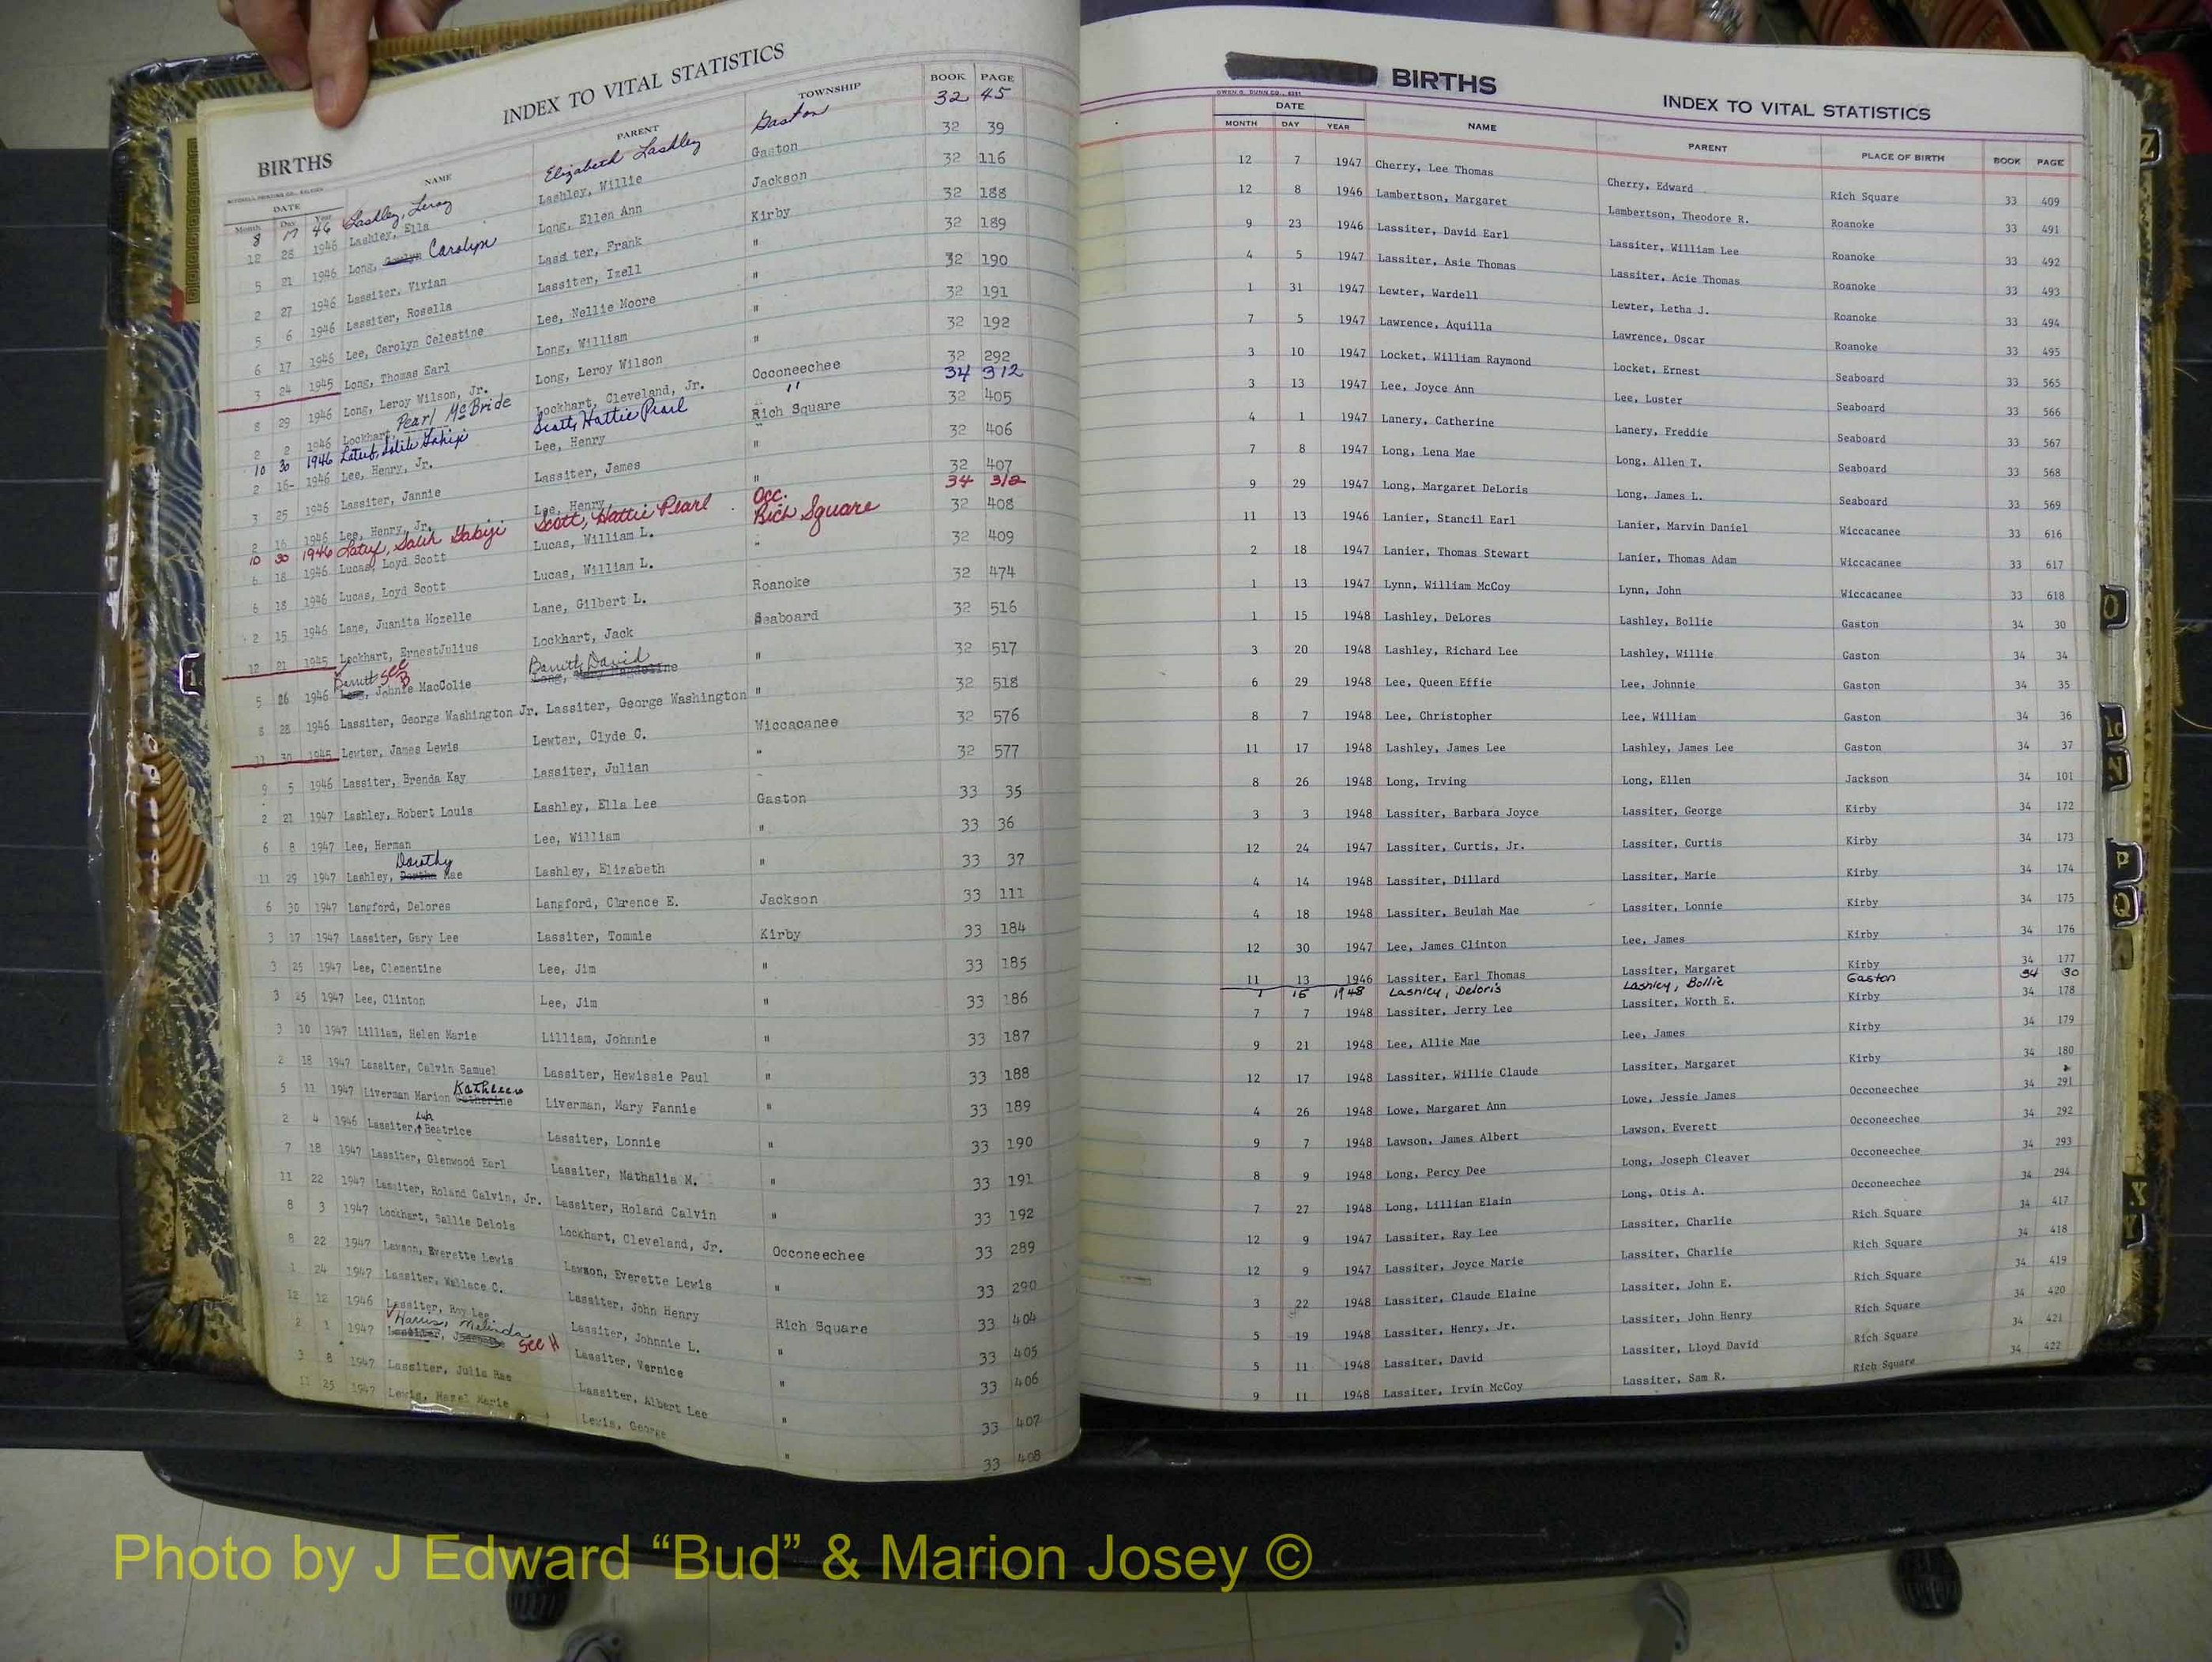 INDEX TO VITAL STATISTICS
BIRTHS
DATE
Month Day Year NAME PARENT TOWNSHIP BOOK PAGE
8 17 46 Lashley, Leroy Elizabeth Lashley Gaston 32 45
12 28 1946 Lashley, Ella Lashley, Willie Gaston 32 39
5 21 1946 Long, Carolyn Long, Ellen Ann Jackson 32 116
2 27 1946 Lassiter, Vivian Lassiter, Frank Kirby 32 188
5 6 1946 Lassiter, Rosella Lassiter, Izell " 32 189
6 17 1946 Lee, Carolyn Celestine Lee, Nellie Moore " 32 190
3 24 1945 Long, Thomas Earl Long, William " 32 191
8 29 1946 Long, Leroy Wilson, Jr. Long, Leroy Wilson " 32 192
2 2 1946 Lockhart, Pearl McBride Lockhart, Cleveland, Jr. Occoneechee 32 292
10 30 1946 Latuf, Salih Scott, Hattie Pearl " 34 312
2 16- 1946 Lee, Henry, Jr. Lee, Henry Rich Square 32 405
3 25 1946 Lassiter, Jannie Lassiter, James " 32 406
2 16 1946 Lee, Henry, Jr. Lee, Henry " 32 407
10 30 1946 Latuf, Salih Scott, Hattie Pearl Occ. Rich Square 34 312
6 18 1946 Lucas, Loyd Scott Lucas, William L. 32 408
6 18 1946 Lucas, Loyd Scott Lucas, William L. " 32 409
2 15 1946 Lane, Juanita Mozelle Lane, Gilbert L. Roanoke 32 474
12 21 1945 Lockhart, ErnestJulius Lockhart, Jack Seaboard 32 516
5 26 1946 Barrett see B Johnie MacColie Barrett, David " 32 517
8 28 1946 Lassiter, George Washington Jr. Lassiter, George Washington " 32 518
11 30 1945 Lewter, James Lewis Lewter, Clyde C. Wiccacanee 32 576
9 5 1946 Lassiter, Brenda Kay Lassiter, Julian " 32 577
2 21 1947 Lashley, Robert Louis Lashley, Ella Lee Gaston 33 35
6 8 1947 Lee, Herman Lee, William " 33 36
11 29 1947 Lashley, Dorothy Mae Lashley, Elizabeth " 33 37
6 30 1947 Langford, Delores Langford, Clarence E. Jackson 33 111
3 17 1947 Lassiter, Gary Lee Lassiter, Tommie Kirby 33 184
3 25 1947 Lee, Clementine Lee, Jim " 33 185
3 25 1947 Lee, Clinton Lee, Jim " 33 186
3 10 1947 Lilliam, Helen Marie Lilliam, Johnnie " 33 187
2 18 1947 Lassiter, Calvin Samuel Lassiter, Hewissie Paul " 33 188
5 11 1947 Liverman Marion Kathleen Liverman, Mary Fannie " 33 189
2 4 1946 Lassiter, Beatrice Lassiter, Lonnie " 33 190
7 18 1947 Lassiter, Glenwood Earl Lassiter, Nathalia M. " 33 191
11 22 1947 Lassiter, Roland Calvin, Jr. Lassiter, Roland Calvin " 33 192
8 3 1947 Lockhart, Sallie Delois Lockhart, Cleveland, Jr. Occoneechee 33 289
8 22 1947 Lawson, Everette Lewis Lawson, Everette Lewis " 33 290
1 24 1947 Lassiter, Wallace C. Lassiter, John Henry Rich Square 33 404
12 12 1946 Lassiter, Roy Lee Lassiter, Johnnie L. " 33 405
2 1 1947 Harris, Melinda See H Lassiter, Vernice " 33 406
3 8 1947 Lassiter, Julia Rae Lassiter, Albert Lee " 33 407
11 25 1947 Lewis, Hazel Marie Lewis, George " 33 408
BIRTHS
INDEX TO VITAL STATISTICS
OWEN G. DUNN CO.
DATE
MONTH DAY YEAR NAME PARENT PLACE OF BIRTH BOOK PAGE
12 7 1947 Cherry, Lee Thomas Cherry, Edward Rich Square 33 409
12 8 1946 Lambertson, Margaret Lambertson, Theodore R. Roanoke 33 491
9 23 1946 Lassiter, David Earl Lassiter, William Lee Roanoke 33 492
4 5 1947 Lassiter, Asie Thomas Lassiter, Acie Thomas Roanoke 33 493
1 31 1947 Lewter, Wardell Lewter, Letha J. Roanoke 33 494
7 5 1947 Lawrence, Aquilla Lawrence, Oscar Roanoke 33 495
3 10 1947 Locket, William Raymond Locket, Ernest Seaboard 33 565
3 13 1947 Lee, Joyce Ann Lee, Luster Seaboard 33 566
4 1 1947 Lanery, Catherine Lanery, Freddie Seaboard 33 567
7 8 1947 Long, Lena Mae Long, Allen T. Seaboard 33 568
9 29 1947 Long, Margaret DeLoris Long, James L. Seaboard 33 569
11 13 1946 Lanier, Stancil Earl Lanier, Marvin Daniel Wiccacanee 33 616
2 18 1947 Lanier, Thomas Stewart Lanier, Thomas Adam Wiccacanee 33 617
1 13 1947 Lynn, William McCoy Lynn, John Wiccacanee 33 618
1 15 1948 Lashley, DeLores Lashley, Bollie Gaston 34 30
3 20 1948 Lashley, Richard Lee Lashley, Willie Gaston 34 34
6 29 1948 Lee, Queen Effie Lee, Johnnie Gaston 34 35
8 7 1948 Lee, Christopher Lee, William Gaston 34 36
11 17 1948 Lashley, James Lee Lashley, James Lee Gaston 34 37
8 26 1948 Long, Irving Long, Ellen Jackson 34 101
3 3 1948 Lassiter, Barbara Joyce Lassiter, George Kirby 34 172
12 24 1947 Lassiter, Curtis, Jr. Lassiter, Curtis Kirby 34 173
4 14 1948 Lassiter, Dillard Lassiter, Marie Kirby 34 174
4 18 1948 Lassiter, Beulah Mae Lassiter, Lonnie Kirby 34 175
12 30 1947 Lee, James Clinton Lee, James Kirby 34 176
11 13 1946 Lassiter, Earl Thomas Lassiter, Margaret Kirby 34 177
1 15 1948 Lashley, Deloris Lashley, Bollie Gaston 34 30
7 7 1948 Lassiter, Jerry Lee Lassiter, Worth E. Kirby 34 178
9 21 1948 Lee, Allie Mae Lee, James Kirby 34 179
12 17 1948 Lassiter, Willie Claude Lassiter, Margaret Kirby 34 180
4 26 1948 Lowe, Margaret Ann Lowe, Jessie James Occoneechee 34 291
9 7 1948 Lawson, James Albert Lawson, Everett Occoneechee 34 292
8 9 1948 Long, Percy Dee Long, Joseph Cleaver Occoneechee 34 293
7 27 1948 Long, Lillian Elain Long, Otis A. Occoneechee 34 294
12 9 1947 Lassiter, Ray Lee Lassiter, Charlie Rich Square 34 417
12 9 1947 Lassiter, Joyce Marie Lassiter, Charlie Rich Square 34 418
3 22 1948 Lassiter, Claude Elaine Lassiter, John E. Rich Square 34 419
5 19 1948 Lassiter, Henry, Jr. Lassiter, John Henry Rich Square 34 420
5 11 1948 Lassiter, David Lassiter, Lloyd David Rich Square 34 421
9 11 1948 Lassiter, Irvin McCoy Lassiter, Sam R. Rich Square 34 422
Z
O
P
Q
Y
Photo by J Edward “Bud” & Marion Josey ©